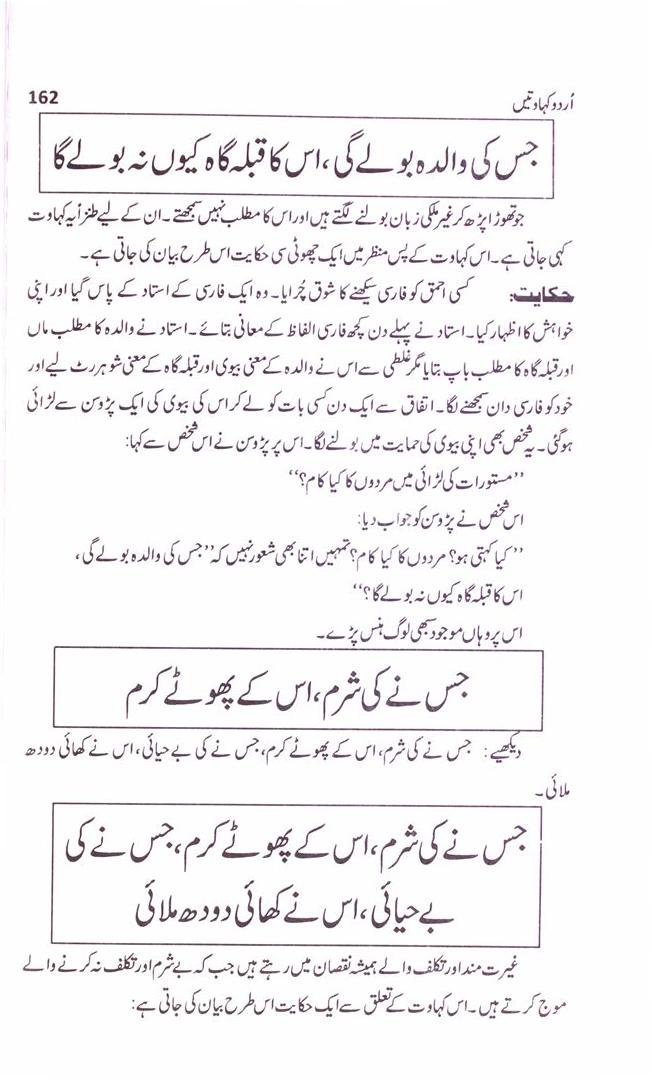 اُردو کہاوتیں 162
جس کی والدہ بولے گی، اس کا قبلہ گاہ کیوں نہ بولے گا
جو تھوڑا پڑھ کر غیر ملکی زبان بولنے لگتے ہیں اور اس کا مطلب نہیں سمجھتے۔ ان کے لیے طنزاً یہ کہاوت
کہی جاتی ہے۔ اس کہاوت کے پس منظر میں ایک چھوٹی سی حکایت اس طرح بیان کی جاتی ہے۔
حکایت: کسی احمق کو فارسی سیکھنے کا شوق چُرایا۔ وہ ایک فارسی کے استاد کے پاس گیا اور اپنی
خواہش کا اظہار کیا۔ استاد نے پہلے دن کچھ فارسی الفاظ کے معانی بتائے۔ استاد نے والدہ کا مطلب ماں
اور قبلہ گاہ کا مطلب باپ بتایا مگر غلطی سے اس نے والدہ کے معنی بیوی اور قبلہ گاہ کے معنی شوہر رٹ لیے اور
خود کو فارسی دان سمجھنے لگا۔ اتفاق سے ایک دن کسی بات کو لے کر اس کی بیوی کی ایک پڑوسن سے لڑائی
ہوگئی۔ یہ شخص بھی اپنی بیوی کی حمایت میں بولنے لگا۔ اس پر پڑوسن نے اس شخص سے کہا:
’’مستورات کی لڑائی میں مردوں کا کیا کام؟‘‘
اس شخص نے پڑوسن کو جواب دیا:
’’کیا کہتی ہو؟ مردوں کا کیا کام؟ تمہیں اتنا بھی شعور نہیں کہ ’’جس کی والدہ بولے گی،
اس کا قبلہ گاہ کیوں نہ بولے گا؟‘‘
اس پر وہاں موجود سبھی لوگ ہنس پڑے۔
جس نے کی شرم، اس کے پھوٹے کرم
دیکھیے: جس نے کی شرم، اس کے پھوٹے کرم، جس نے کی بے حیائی، اس نے کھائی دودھ
ملائی۔
جس نے کی شرم، اس کے پھوٹے کرم، جس نے کی
بے حیائی، اس نے کھائی دودھ ملائی
غیرت مند اور تکلف والے ہمیشہ نقصان میں رہتے ہیں جب کہ بے شرم اور تکلف نہ کرنے والے
موج کرتے ہیں۔ اس کہاوت کے تعلق سے ایک حکایت اس طرح بیان کی جاتی ہے: